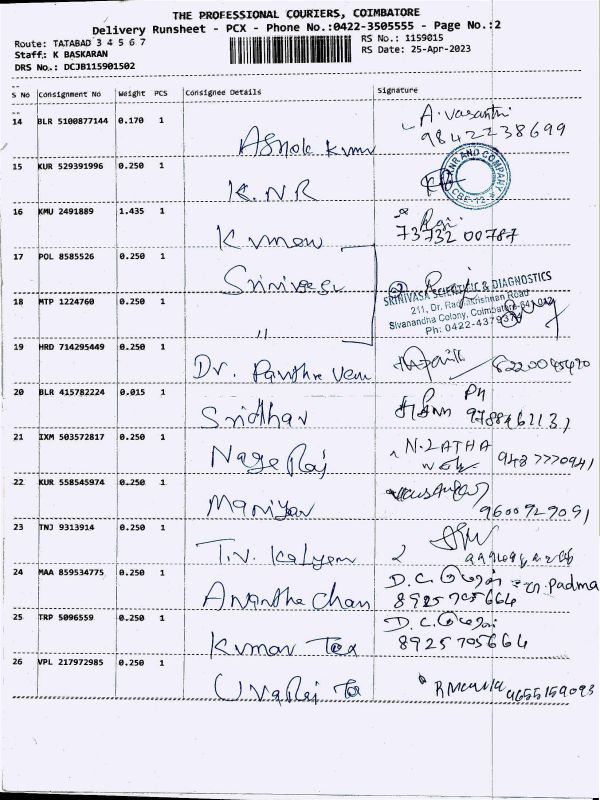 THE PROFESSIONAL COURIERS, COIMBATORE
Delivery Runsheet - PCX - Phone No.:0422-3505555 - Page No.:2
Route: TATABAD 3 4 5 6 7
RS No.: 1159015
Staff: K BASKARAN
RS Date: 25-Apr-2023
DRS No.: DCJB115901502
S No Consignment No Weight PCS Consignee Details Signature
14 BLR 5100877144 0.170 1 A. Vasanthi
Ashok Kumar 9842238699
15 KUR 529391996 0.250 1
K.N.R
KNR AND COMPANY
CBE-12
16 KMU 2491889 1.435 1
Kumar 73732 00787
17 POL 8585526 0.250 1
Srinivasa
SRINIVASA SCIENTIFIC & DIAGNOSTICS
18 MTP 1224760 0.250 1
211, Dr. Radhakrishnan Road
Sivanandha Colony, Coimbatore-641
"
Ph: 0422-437937
19 HRD 714295449 0.250 1
Dr.
20 BLR 415782224 0.015 1
Sridhar
21 IXM 503572817 0.250 1 N. LATHA
Nage Raj 9487770941
22 KUR 558545974 0.250 1
Maniyan 9600929091
23 TNJ 9313914 0.250 1
T.V. Kalyan
24 MAA 859534775 0.250 1 D.C. Padma
Anantha Chan 8925705664
25 TRP 5096559 0.250 1 D.C.
Kumar Tex 8925705664
26 VPL 217972985 0.250 1
9655159093